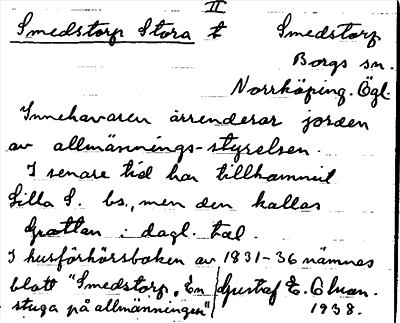 II
Smedstorp Stora t Smedstorp
Borgs sn.
Norrköping. Ögl.
Innehavaren arrenderar jorden
av allmännings-styrelsen.
I senare tid har tillkommit
Lilla S. bs., men den kallas
Grottan i dagl. tal.
I husförhörsboken av 1831-36 nämnes
blott "Smedstorp, En
stuga på allmänningen"
Gustaf E. Olman.
1938.